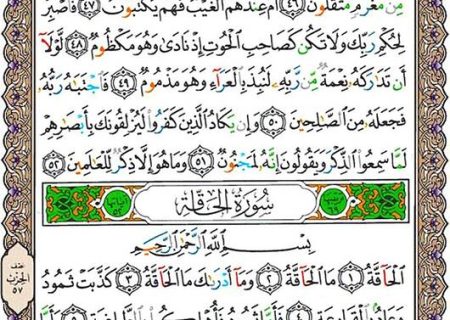 مِّن مَّغْرَمٍ مُّثْقَلُونَ ٤٦ أَمْ عِندَهُمُ ٱلْغَيْبُ فَهُمْ يَكْتُبُونَ ٤٧ فَٱصْبِرْ
لِحُكْمِ رَبِّكَ وَلَا تَكُن كَصَاحِبِ ٱلْحُوتِ إِذْ نَادَىٰ وَهُوَ مَكْظُومٌ ٤٨ لَّوْلَآ
أَن تَدَٰرَكَهُۥ نِعْمَةٌ مِّن رَّبِّهِۦ لَنُبِذَ بِٱلْعَرَآءِ وَهُوَ مَذْمُومٌ ٤٩ فَٱجْتَبَٰهُ رَبُّهُۥ
فَجَعَلَهُۥ مِنَ ٱلصَّٰلِحِينَ ٥٠ وَإِن يَكَادُ ٱلَّذِينَ كَفَرُوا۟ لَيُزْلِقُونَكَ بِأَبْصَٰرِهِمْ
لَمَّا سَمِعُوا۟ ٱلذِّكْرَ وَيَقُولُونَ إِنَّهُۥ لَمَجْنُونٌ ٥١ وَمَا هُوَ إِلَّا ذِكْرٌ لِّلْعَٰلَمِينَ ٥٢
سُورَةُ الْحَاقَّةِ
بِسْمِ ٱللَّهِ ٱلرَّحْمَٰنِ ٱلرَّحِيمِ
ٱلْحَآقَّةُ ١ مَا ٱلْحَآقَّةُ ٢ وَمَآ أَدْرَىٰكَ مَا ٱلْحَآقَّةُ ٣ كَذَّبَتْ ثَمُودُ
نصف
الحزب
٥٧